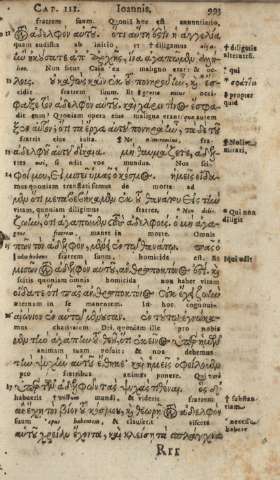 CAP. III. Ioannis. 993
fratrem suum. Quoniā hæc est annuntiatio,
ἀδελφὸν αὐτοῦ. ὅτι αὕτη ἐστὶν ἡ ἀγγελία
quam audistis ab initio, vt † diligamus alte-
ἠκούσατε ἀπ᾽ ἀρχῆς, ἵνα ἀγαπῶμεν
† diligatis
alterutrū.
trum. Non sicut Cain ex maligno erat, &
λοις. οὐ καθὼς Κάϊν ἐκ τοῦ πονηροῦ ἦν, καὶ ἔσ-
† qui
cidit fratrem suum. Et propter quid occi-
φαξε τὸν ἀδελφὸν αὐτοῦ. καὶ χάριν τίνος ἔσφα-
† propter
quid
dit eum? Quoniam opera eius maligna erant:
αὐτόν; ὅτι τὰ ἔργα αὐτοῦ πονηρὰ ἦν, τὰ δὲ τοῦ
fratris eius iusta.
ἀδελφοῦ αὐτοῦ δίκαια. μὴ θαυμάζετε, ἀδελ-
mirari,
tres mei, si odit vos mundus. Nos
φοί μου, εἰ μισεῖ ὑμᾶς ὁ κόσμος. ἡμεῖς οἴδα-
mus quoniam translati sumus de morte ad
μεν ὅτι μεταβεβήκαμεν ἐκ τοῦ θανάτου εἰς τὴν
vitam, quoniam diligimus fratres.
ζωὴν, ὅτι ἀγαπῶμεν τοὺς ἀδελφούς. ὁ μὴ ἀγα-
Qui non
diligit
fratrem, manet in morte. Omnis
πῶν τὸν ἀδελφὸν, μένει ἐν τῷ θανάτῳ. πᾶς ὁ
fratrem suum, homicida est.
μισῶν τὸν ἀδελφὸν αὐτοῦ, ἀνθρωποκτόνος ἐστί. καὶ
† qui odit
scitis quoniam omnis homicida non habet vitam
οἴδατε ὅτι πᾶς ἀνθρωποκτόνος οὐκ ἔχει ζωὴν
æternam in se manentem. In hoc cognoui-
αἰώνιον ἐν αὐτῷ μένουσαν. ἐν τούτῳ ἐγνώκα-
mus charitatem Dei, quoniam ille pro nobis
μεν τὴν ἀγάπην τοῦ θεοῦ, ὅτι ἐκεῖνος ὑπὲρ ἡμῶν
animam suam posuit: & nos debemus
τὴν ψυχὴν αὐτοῦ ἔθηκε· καὶ ἡμεῖς ὀφείλομεν
pro fratribus animas ponere. Qui
ὑπὲρ τῶν ἀδελφῶν τὰς ψυχὰς τιθέναι. ὃς δ᾽
habuerit mundi, & viderit fratrem
ἂν ἔχῃ τὸν βίον τοῦ κόσμου, καὶ θεωρῇ τὸν ἀδελφὸν
† substan-
tiam
suum habentem, & clauserit
αὐτοῦ χρείαν ἔχοντα, καὶ κλείσῃ τὰ σπλάγχνα
habere
Rrr